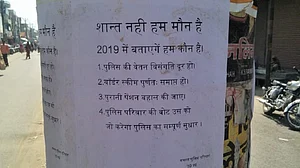 शान्त नही हम मौन है
2019 में बताएगें हम कौन है।
1.पुलिस की वेतन विसंगति दूर हो।
2.बॉर्डर स्कीम पूर्णतः समाप्त हो।
3.पुरानी पेंशन बहाल की जाए।
4.पुलिस परिवार की वोट उस को
जो करेगा पुलिस का सम्पूर्ण सुधार।